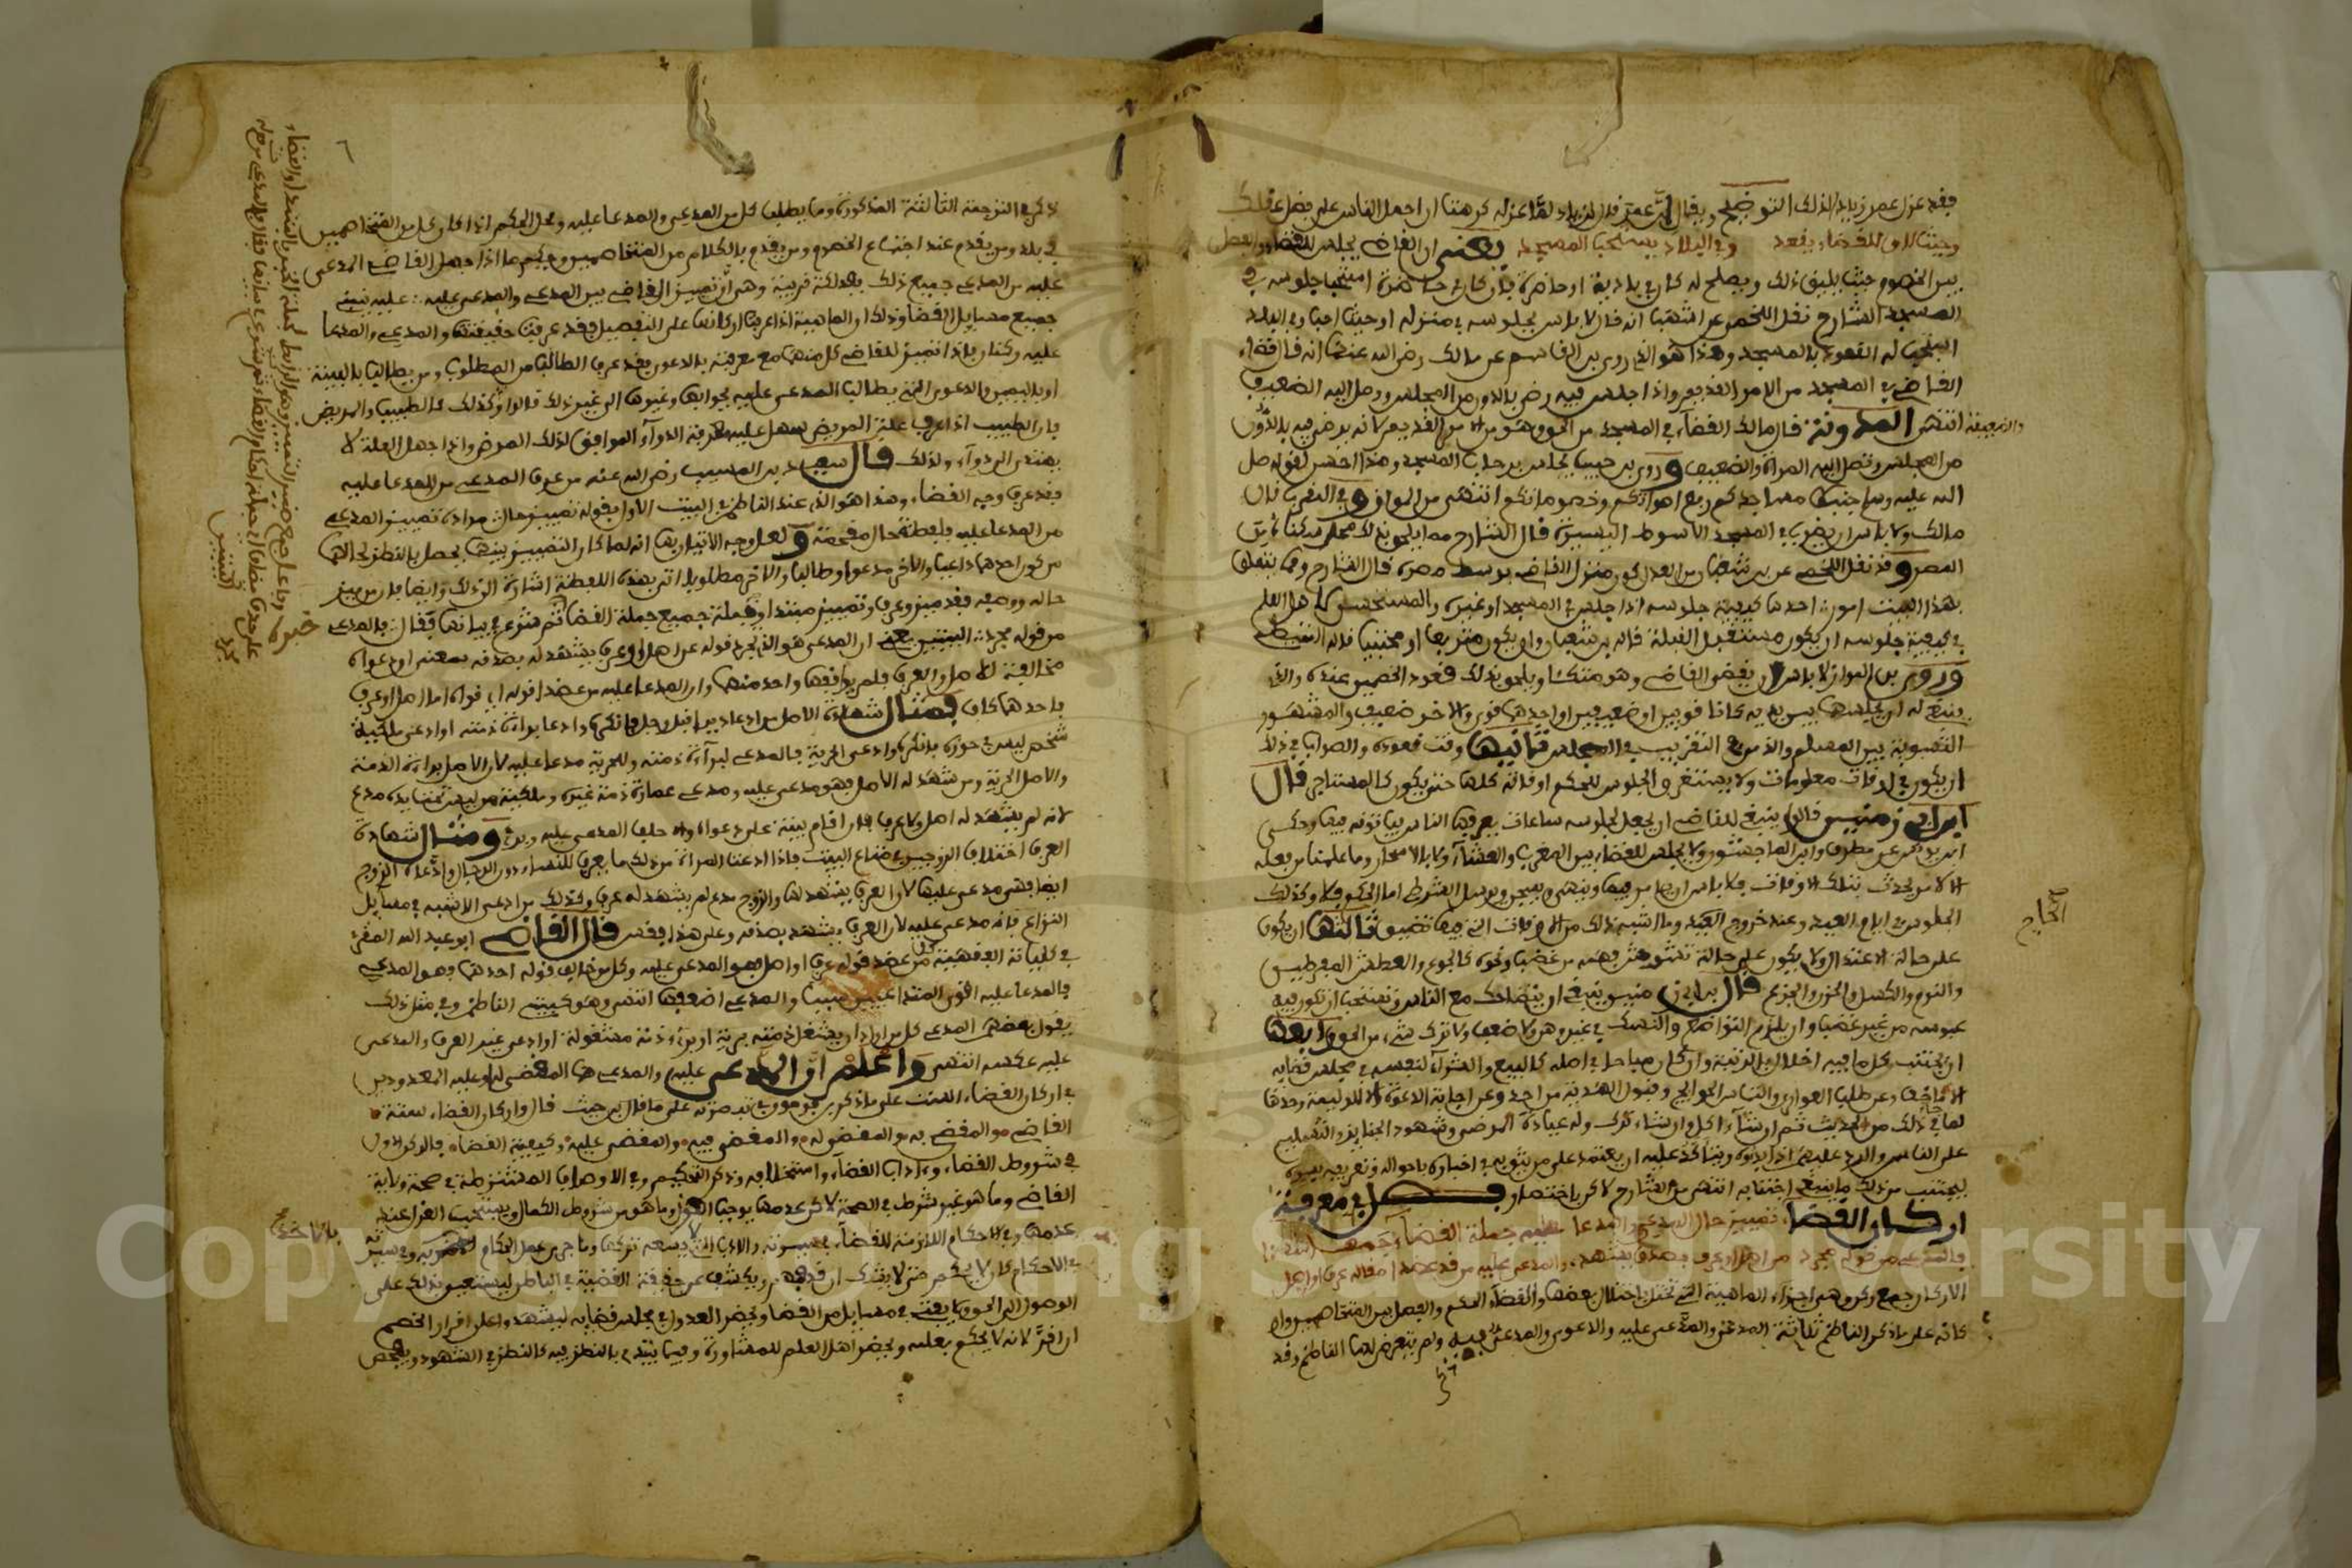 فقد عزل عمر زيادا لذلك التوضيح ويقال ان عمر قال لزياد لما عزله كرهت ان احمل الناس على فضل عقلك
وحيث لاق للقضاء يقعد وفي البلاد يستحب المسجد يعني ان القاضي يجلس للقضاء والفصل
بين الخصوم حيث يليق ذلك ويصلح له كان في بادية او حاضرة فان كان في حاضرة استحب جلوسه في
المسجد الشارح نقل اللخمي عن اشهب انه قال لا باس بجلوسه في منزله او حيث احب وفي البلاد
استحب له القعود بالمسجد وهذا هو الذي روى بن القاسم عن مالك رضي الله عنه انه قال قضاء
القاضي في المسجد من الامر القديم واذا جلس فيه رضي بالدون من المجلس ووصل اليه الضعيف
والضعيفة انتهى المدونة قال مالك القضاء في المسجد من الحق وهو من الامر القديم لانه يرضى فيه بالدون
من المجلس وتصل اليه المراة والضعيف وروى بن حبيب يجلس برحاب المسجد وهذا احسن لقوله صلى
الله عليه وسلم جنبوا مساجدكم رفع اصواتكم وخصوماتكم انتهى من المواق وفي التقريب قال
مالك ولا باس ان يضرب في المسجد الاسواط اليسيرة قال الشارح
المصر وقد نقل اللخمي عن بن شعبان من العدل كون منزل القاضي بوسط مصره قال الشارح ومما يتعلق
بهذا البيت امور احدها كيفية جلوسه اذا جلس في المسجد او غيره والمستحسن لاهل العلم
في كيفية جلوسه ان يكون مستقبل القبلة قاله بن شعبان وان يكون متربعا او محتبيا
وروى بن المواز لا باس ان يقضي القاضي وهو متكئ ويلحق بذلك قعود الخصمين عنده والذي
ينبغي له ان يجلسهما بين يديه كانا قويين او ضعيفين او احدهما قوي والاخر ضعيف والمشهور
التسوية بين المسلم والذمي في التقريب في المجلس ثانيها وقت قعوده والصواب في ذلك
ان يكون في اوقات معلومات ولا يستغرق الجلوس للحكم اوقاته كلها حتى يكون كالمستاجر قال
ابن ابي زمنين قالوا ينبغي للقاضي ان يجعل لجلوسه ساعات يعرفها الناس فياتونه فيها وحكى
ابن يونس عن مطرف وابن الماجشون ولا يجلس للقضاء بين المغرب والعشاء ولا بالاسحار وما علمنا من فعله
الا لامر يحدث بتلك الاوقات فلا باس ان يامر فيها وينهى ويسجن ويرسل الشرط اما الحكم فلا وكذلك
الجلوس في ايام العيد وعند خروج الحاج وما اشبه ذلك من الاوقات التي فيها تضييق ثالثها ان يكون
على حالة اعتدال ولا يكون على حالة تشوش فهمه من غضب ونحوه كالجوع والعطش المفرطين
والنوم والكسل والحزن والجزع قال بن ابي زمنين ينبغي ان يتضاحك مع الناس ويستحب ان تكون فيه
عبوسه من غير غضب وان يلزم التواضع والنسك في غير وهن ولا ضعف ولا ترك شيء من الحق رابعها
ان يجتنب كل ما فيه اخلال بالرتبة وان كان مباحا في اصله كالبيع والشراء لنفسه في مجلس قضائه
وعن طلب العواري والتماس الحوايج وقبول الهدية من احد وعن اجابة الدعوة الا للوليمة وحدها
لما في ذلك من الحديث ثم ان شاء اكل وان شاء ترك وله عيادة المرضى وشهود الجنايز والتسليم
على الناس والرد عليهم اذا بدوه ويتاكد عليه ان يعتمد على من يثق به في اخباره باحواله وتعريفه بعيوبه
ليجتنب من ذلك ما ينبغي اجتنابه انتهى من الشارح لاكن باختصار فصل في معرفة
اركان القضاء تمييز حال المدعي والمدعا عليه جملة القضاء جمعا
فالمدعي من قوله مجرد من اصل او عرف بصدق يشهد والمدعى عليه من قد عضدا مقاله عرف او اصل
الاركان جمع ركن وهي اجزاء الماهية التي تختل باختلال بعضها والقضاء الحكم والفصل بين المتخاصمين واركانه
على ما ذكر الناظم ثلاثة المدعي والمدعى عليه والدعوى والمدعى فيه ولم يتعرض لهما الناظم وقد
الحاج
ذكر في الترجمة الثالثة المذكورة وما يطلب كل من المدعي والمدعا عليه ومحل الحكم اذا كان كل من المتخاصمين
في بلد ومن يقدم عند اجتماع الخصوم ومن يقدم بالكلام من المتخاصمين وحكم ما اذا جهل القاضي المدعى
عليه من المدعي جميع ذلك وهي ان تمييز القاضي بين المدعي والمدعى عليه عليه تبنى
جميع مسايل القضا وذلك ان الماهية اذا عرفت اركانها على التفصيل فقد عرفت حقيقتها والمدعي والمدعا
عليه ركنان فاذا تميز للقاضي كل منهما مع معرفته بالدعوى فقد عرف الطالب من المطلوب ومن يطالب بالبينة
او باليمين والدعوى التي يطالب المدعى عليه بجوابها وغيرها الى غير ذلك قالوا وكذلك كالطبيب والمريض
فان الطبيب اذا عرف علة المريض سهل عليه معرفة الدواء الموافق لذلك المرض واذا جهل العلة لا
يهتدي الى دواء ولذلك قال سعيد بن المسيب رضي الله عنه من عرف المدعي من المدعا عليه
فقد عرف وجه القضاء وهذا هو الذي عند الناظم في البيت الاول بقوله تمييز حال مراده تمييز المدعي
من المدعا عليه فلفظة حال مقحمة ولعل وجه الاتيان بها انه لما كان التمييز بينهما يحصل بالنظر لحالهما
من كون احدهما طالبا والاخر مطلوبا اتى بهذه اللفظة اشارة الى ذلك وايضا فان من ميز
حاله ووصفه فقد ميزه وعرفه وتمييز مبتدا وجملة جميع جملة القضاء ثم شرع في بيانها فقال فالمدعي
من قوله مجرد البيتين يعني ان المدعي هو الذي تجرد قوله عن اصل او عرف يشهد له بصدقه بمعنى ان دعواه
مخالفة للاصل والعرف فلم يوافقها واحد منهما وان المدعا عليه من عضد قوله اي قواه اما اصل او عرف
باحدهما كاف فمثال شهادة الاصل من ادعا دينا قبل رجل فانكره او ادعا براءة ذمته او ادعى ملكية
شخص ليس في حوزه فانكره وادعى الحرية فالمدعي لبراءة ذمته وللحرية مدعا عليه لان الاصل براءة الذمة
والاصل الحرية ومن شهد له الاصل فهو مدعى عليه ومدعي عمارة ذمة غيره وملكية من ليس تحت يده مدع
لانه لم يشهد له اصل ولا عرف فان اقام بينة على دعواه والا حلف المدعى عليه وبرئ ومثال شهادة
العرف اختلاف الزوجين في متاع البيت فاذا ادعت المراة من ذلك ما يعرف للنساء دون الرجال وادعاه الزوج
ايضا فهي مدعى عليها لان العرف يشهد لها والزوج مدع لم يشهد له عرف وكذلك من ادعى الاشبه في مسايل
النزاع فانه مدعى عليه لان العرف يشهد بصدقه وعلى هذا فقس قال القاضي ابو عبد الله المقري
في كلياته الفقهية كل من عضد قوله عرف او اصل فهو المدعى عليه وكل من خالف قوله احدهما فهو المدعي
فالمدعا عليه اقوى المتداعيين سببا والمدعي اضعفها انتهى وهو كبيتي الناظم وفي مثل ذلك
يقول بعضهم المدعي كل من اراد ان يشغل ذمة برية او يبرئ ذمة مشغولة او ادعى غير العرف والمدعى
عليه عكسه انتهى واعلم ان المدعى عليه والمدعي هما المقضي له وعليه المعدودين
في اركان القضاء الست على ما ذكر بن فرحون في تبصرته على ما قال بن حيث قال واركان القضاء ستة
القاضي والمقضي به والمقضي له والمقضي فيه والمقضي عليه وكيفية القضاء فالركن الاول
في شروط القضاء وءاداب القضاء واستخلافه وذكر التحكيم وفي الاوصاف المشترطة في صحة ولاية
القاضي وما هو غير شرط في الصحة لاكن عدمها يوجب العزل وما هو من شروط الكمال ويستحب العزل عند
عدمها وفي الاحكام اللازمة للقضاء في سيرته والاداب التي لا يسعه تركها وما جرى به عمل الحكام وفي سيرته
في الاحكام فان لا يحكم حتى لا يشك ان قد فهم ويكشف عن حقيقة القضية في الباطن ليستعين بذلك على
الوصول الى الحق ولا يفتي في مسايل من القضاء ويحضر العدول في مجلس قضايه ليشهدوا على اقرار الخصم
ان اقر لانه لا يحكم بعلمه ويحضر اهل العلم للمشاورة وفيما يبتدئ بالنظر فيه كالنظر في الشهود ويفحص
٦